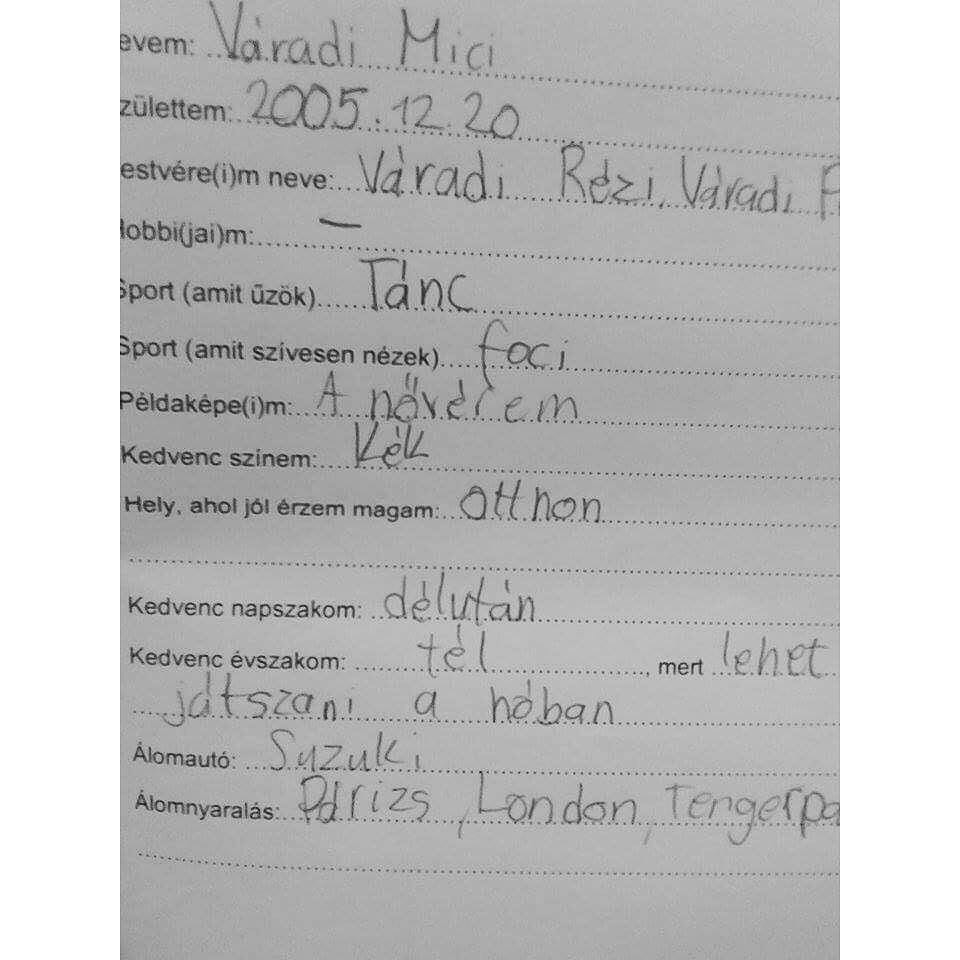 evem: Váradi Mici
zülettem: 2005.12.20
estvére(i)m neve: Váradi Rézi, Váradi
Hobbi(jai)m: —
Sport (amit űzök) Tánc
Sport (amit szívesen nézek) foci
Példaképe(i)m: A nővérem
Kedvenc színem: Kék
Hely, ahol jól érzem magam: otthon
Kedvenc napszakom: délután
Kedvenc évszakom: tél, mert lehet
játszani a hóban
Álomautó: Suzuki
Álomnyaralás: Párizs, London, Tengerpa